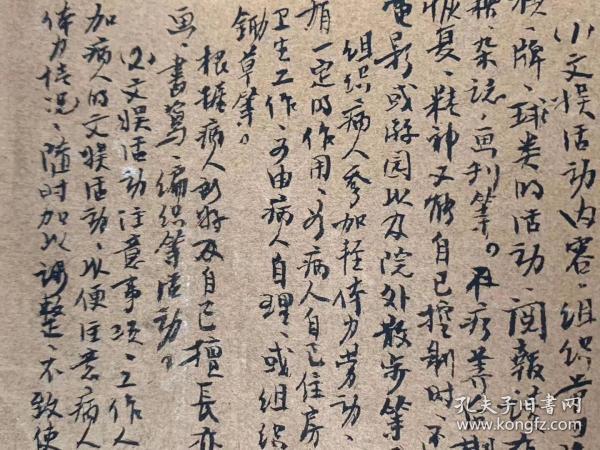 (1)文娱活动内容、组织
牌、球类的活动、阅报
杂志、画刊等。在疗养
恢复、精神又能自己控制时、不
电影或游园以及院外散步等
组织病人参加轻体力劳动、
有一定的作用、如病人自己住房
卫生工作、可由病人自理、或组织
锄草等。
根据病人爱好及自己擅长
画、书写、编织等活动。
(2)文娱活动注意事项、工作人
加病人的文娱活动、以便注意病人
体力情况、随时加以调整、不致使
孔夫子旧书网
www.kongfz.com